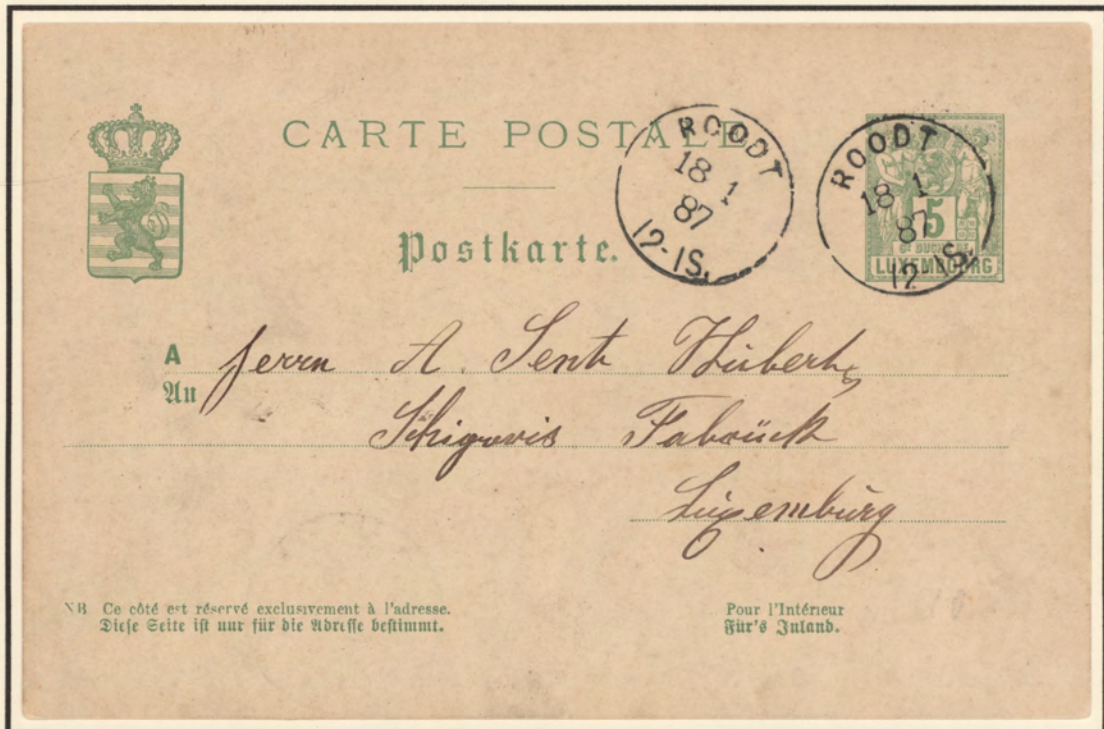 CARTE POSTALE
ROODT
18 1
87
12-1S.
ROODT
18 1
87
12-1S.
5
GD DUCHÉ DE
LUXEMBOURG
Postkarte.
A
An
Herrn A. Sent Hubert,
Fabrück
Luxemburg
NB Ce côté est réservé exclusivement à l'adresse.
Diese Seite ist nur für die Adresse bestimmt.
Pour l'Intérieur
Für's Inland.